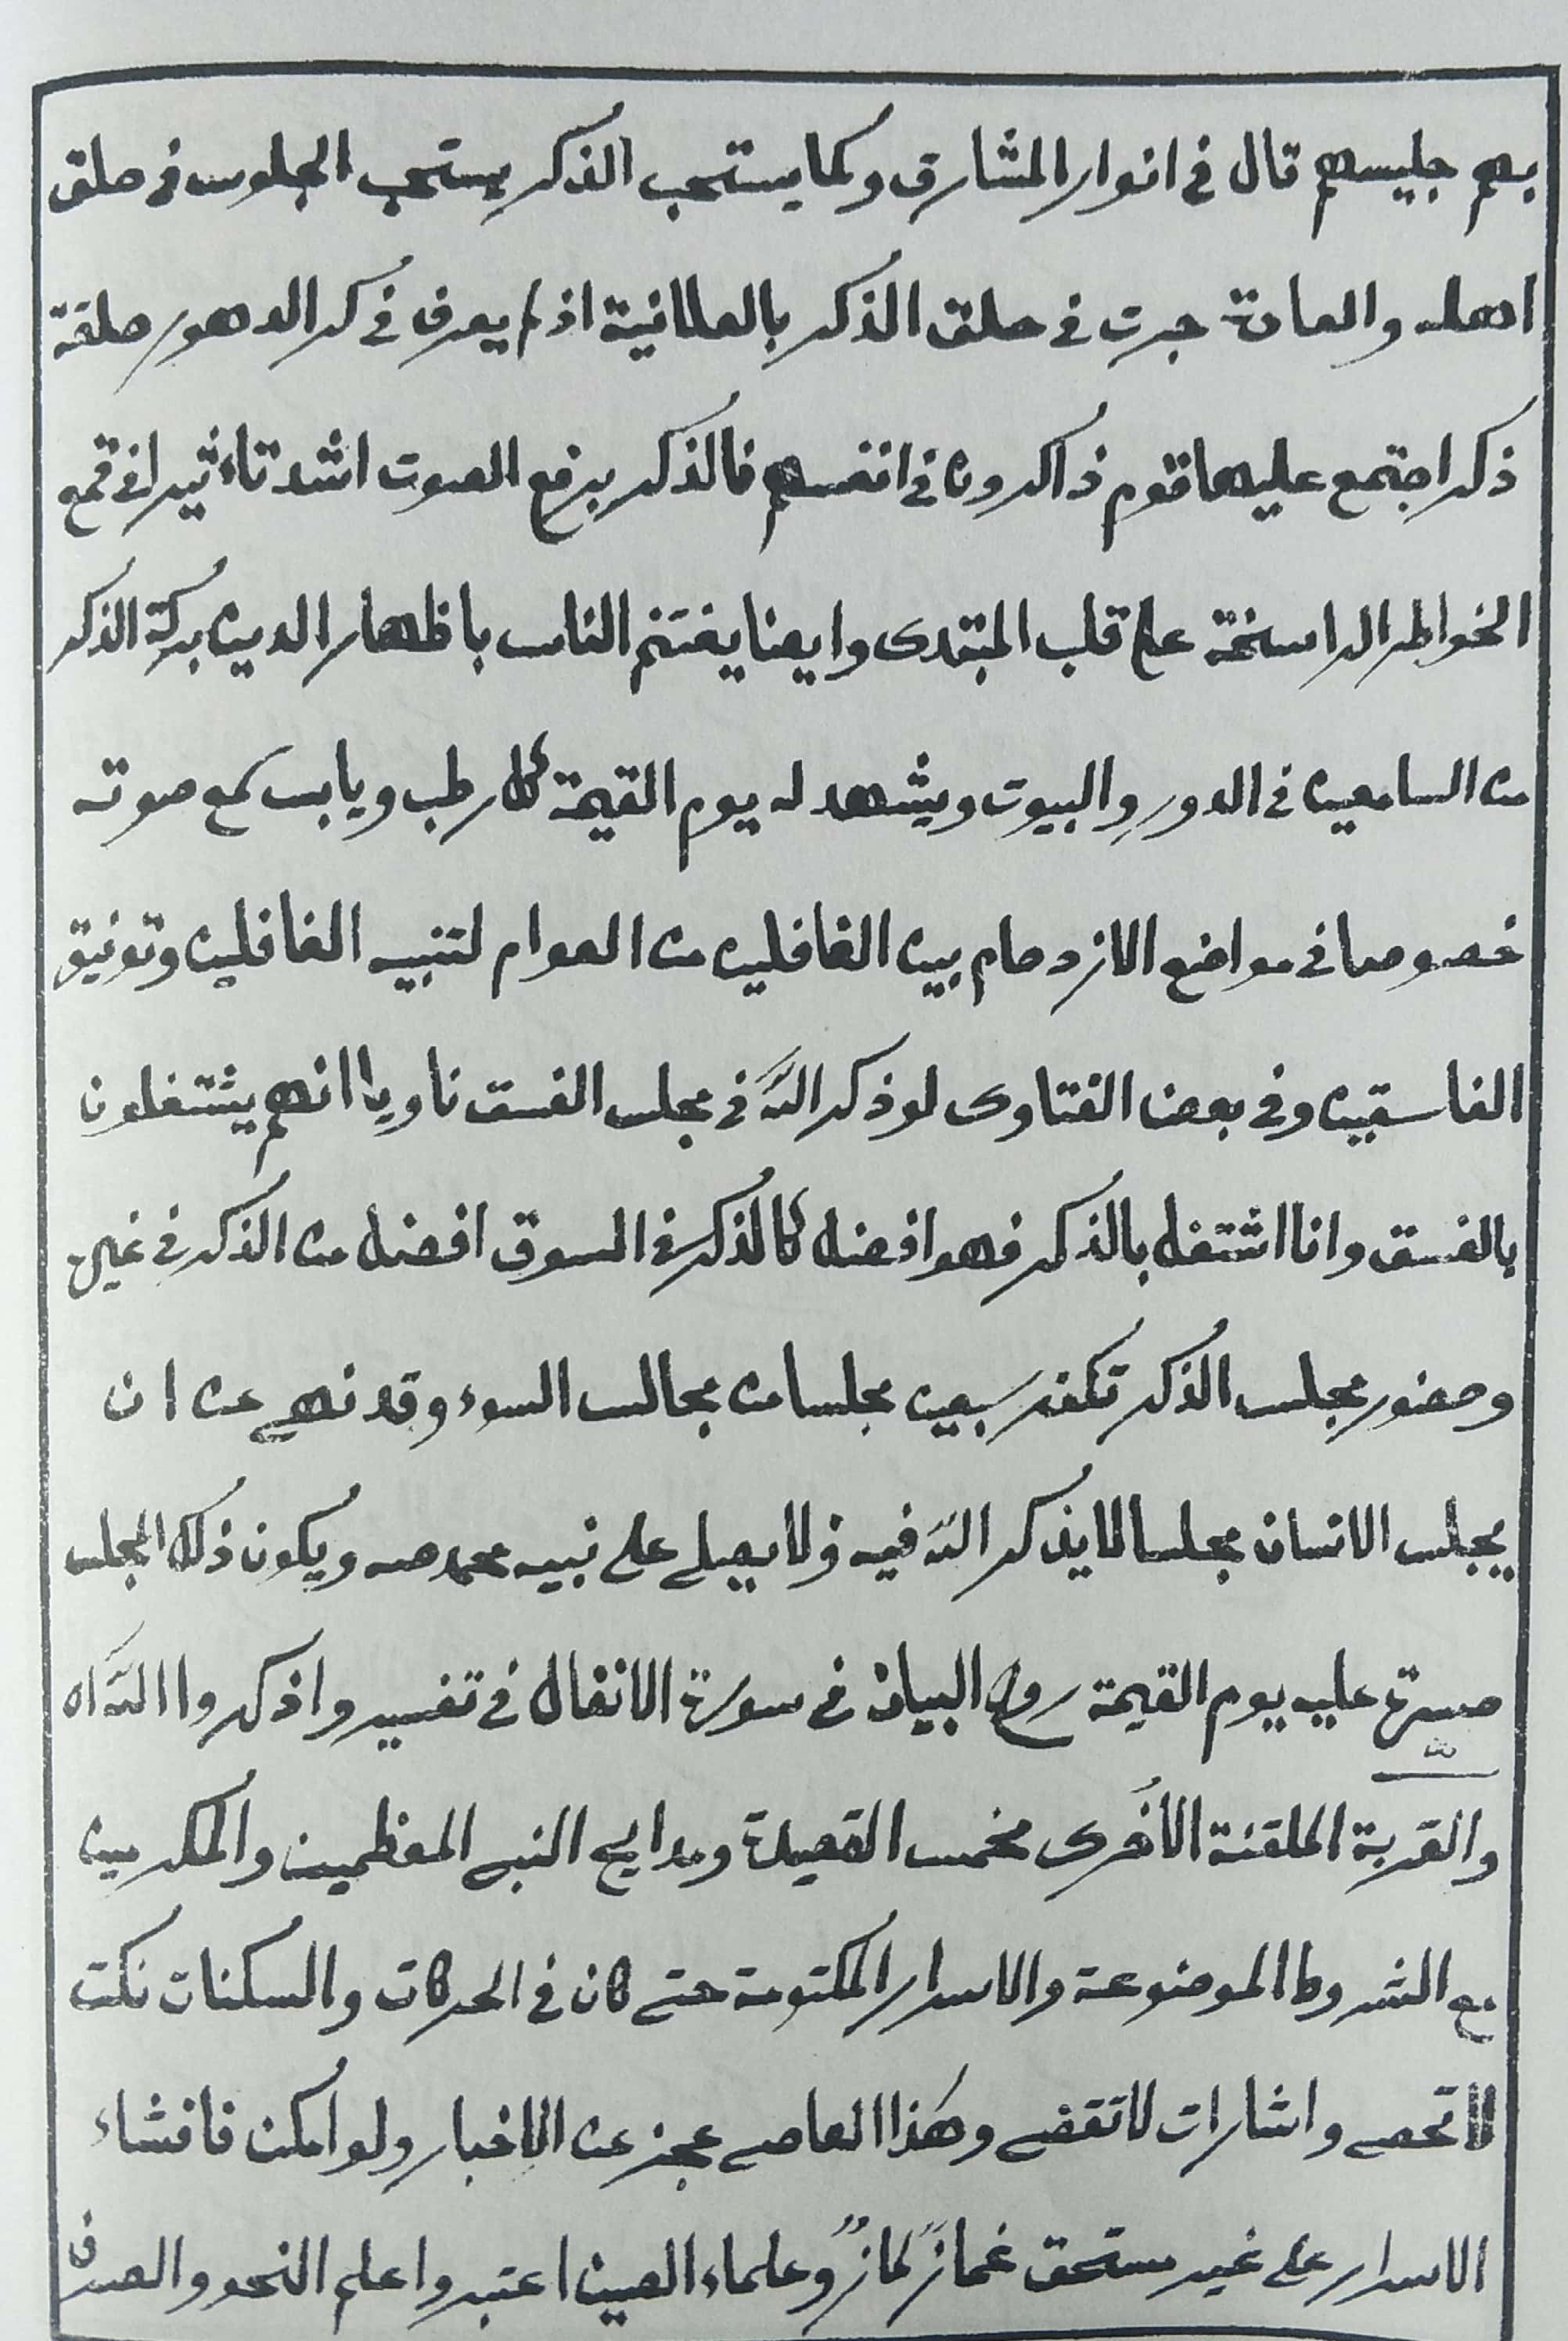 بهم جليسهم قال في انوار المشارق وكما يستحب الذكر يستحب الجلوس في حلق
اهله والعادة جرت في حلق الذكر بالعلانية اذ لم يعرف في كر الدهور حلقة
ذكر اجتمع عليها قوم ذاكرون في انفسهم فالذكر برفع الصوت اشد تاءثيرا في قمع
الخواطر الراسخة على قلب المبتدى وايضا يغتنم الناس باظهار الدين بركة الذكر
من السامعين في الدور والبيوت ويشهد له يوم القيمة كل رطب ويابس سمع صوته
خصوصا في مواضع الازدحام بين الغافلين من العوام لتنبيه الغافلين وتوفيق
الفاسقين وفي بعض الفتاوى لو ذكر الله في مجلس الفسق ناويا انهم يشتغلون
بالفسق وانا اشتغل بالذكر فهو افضل كالذكر في السوق افضل من الذكر في غيره
وحضور مجلس الذكر تكفر سبعين مجلسا من مجالس السوء وقد نهى عن ان
يجلس الانسان مجلسا لا يذكر الله فيه ولا يصلى على نبيه محمد صه ويكون ذلك المجلس
حسرة عليه يوم القيمة روح البيان في سورة الانفال في تفسير واذكروا الله اه
والقربة الملقنة الأخرى مخمس القصيدة ومدايح النبى المعظمين والمكرمين
مع الشروط الموضوعة والاسرار المكتومة حتى كان في الحركات والسكنات نكت
لا تحصى واشارات لا تقضى وهكذا العاصى عجز عن الاخبار ولو امكن فافشاء
الاسرار على غير مستحق غماز لماز وعلماء الصين اعتبروا علم النحو والصرف